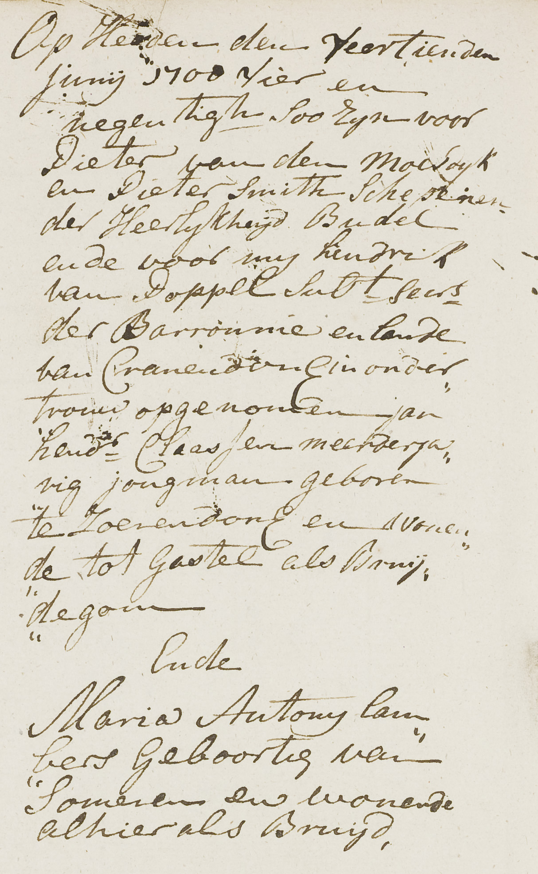 Op Heeden den Veertienden
Junij 1700 Vier en
negentigh Soo Zyn voor
Pieter van den Moesdyk
en Pieter Smith Schepenen
der Heerlykheyd Budel
ende voor my hendrik
van Poppel Subt= Secrs=
der Barronnie en lande
van Cranendonk in onder
trouw opgenomen jan
"hendr= Claassen meerderja"
rig jongman geboren
"te Zoerendonk en wonen"
de tot Gastel als Bruij"
"degom
"
Ende
Maria Antony lam
bers Geboortig van"
"Someren en wonende
alhier als Bruijd,